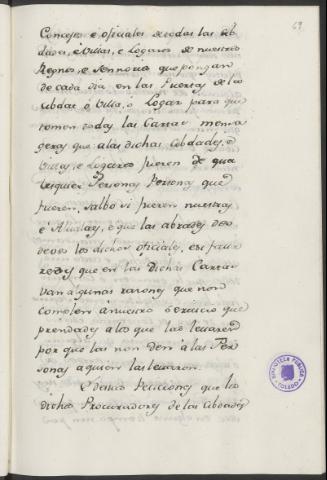 69
Concejos e oficiales de todas las Cib
dades, e Villas, e Logares de nuestro
Regnos, e Sennorio que pongan
de cada dia en las Puertas de la
Cibdat o Villa, o Logar para que
tomen todas las Cartas mensa
geras que a las dichas Cibdades, o
Villas, e Logares fueren de qua
lesquier Personas Persona que
fueren, salbo si fueren nuestras
e Alvalaes, e que las abrades
deves los dichos oficiales, e si falla
redes que en las dichas Cartas
van algunas rasones que non
complen a nuestro servicio que
prendades a los que las levaren
por que las non den a las Per
sonas a quien las levaron.
E destas Peticiones que los
dichos Procuradores de las Cibdades
BIBLIOTECA PÚBLICA
TOLEDO